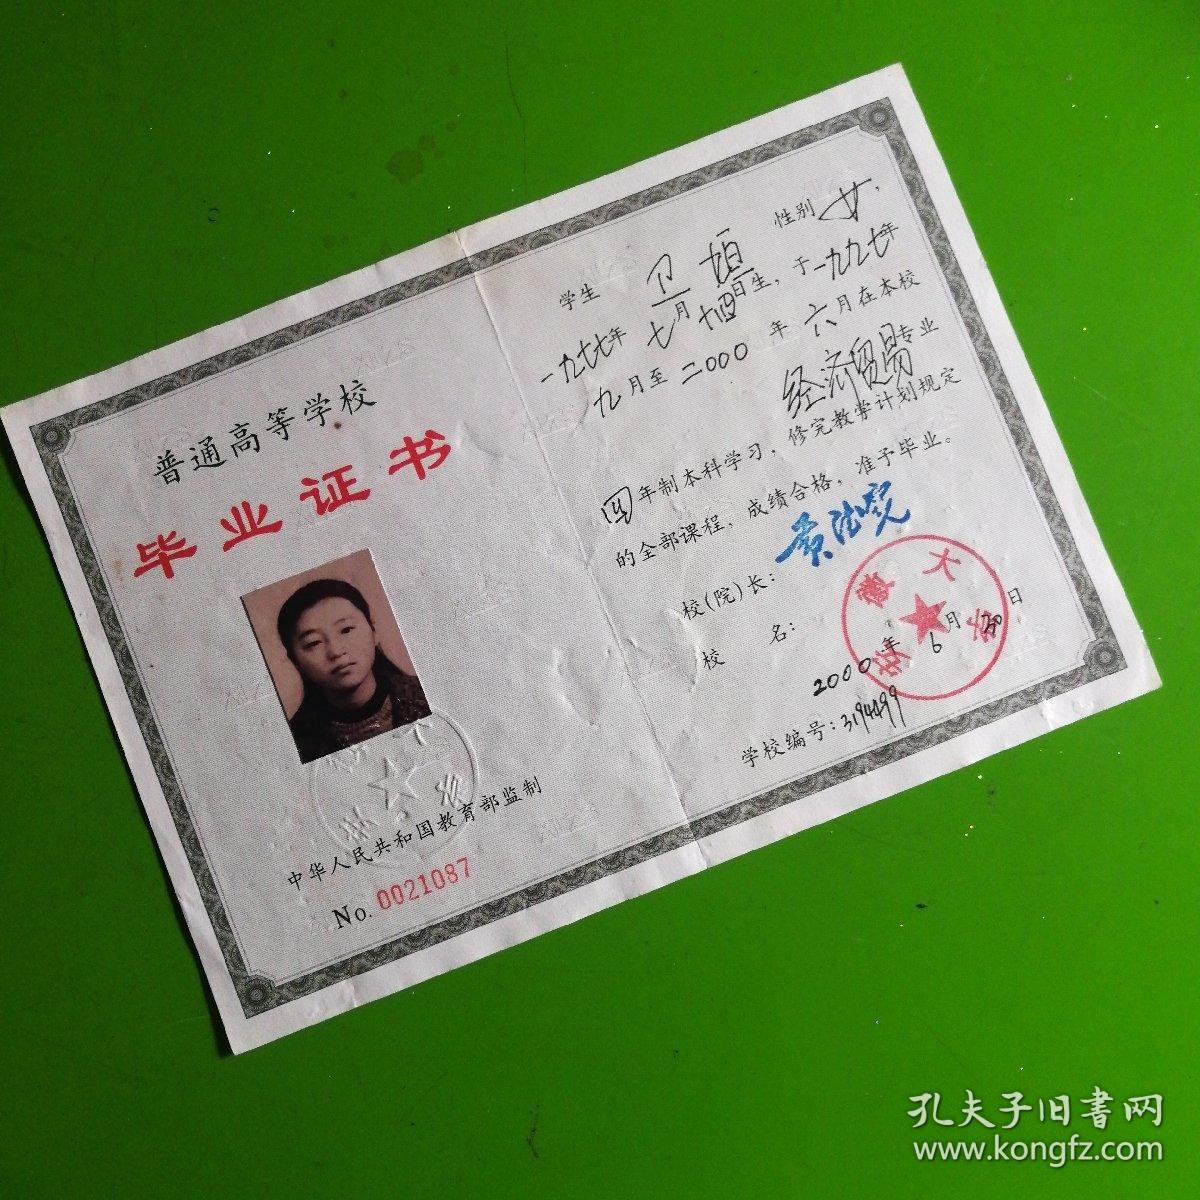 普通高等学校
毕业证书
中华人民共和国教育部监制
No. 0021087
学生 卫 性别 女,
一九七七年 七月十四日生, 于一九九七年
九月至二000年 六月在本校
经济贸易专业
四年制本科学习, 修完教学计划规定
的全部课程, 成绩合格, 准予毕业。
校(院)长:
校 名:
安徽大学
2000年 6月 30日
学校编号: 3194499
孔夫子旧書网
www.kongfz.com